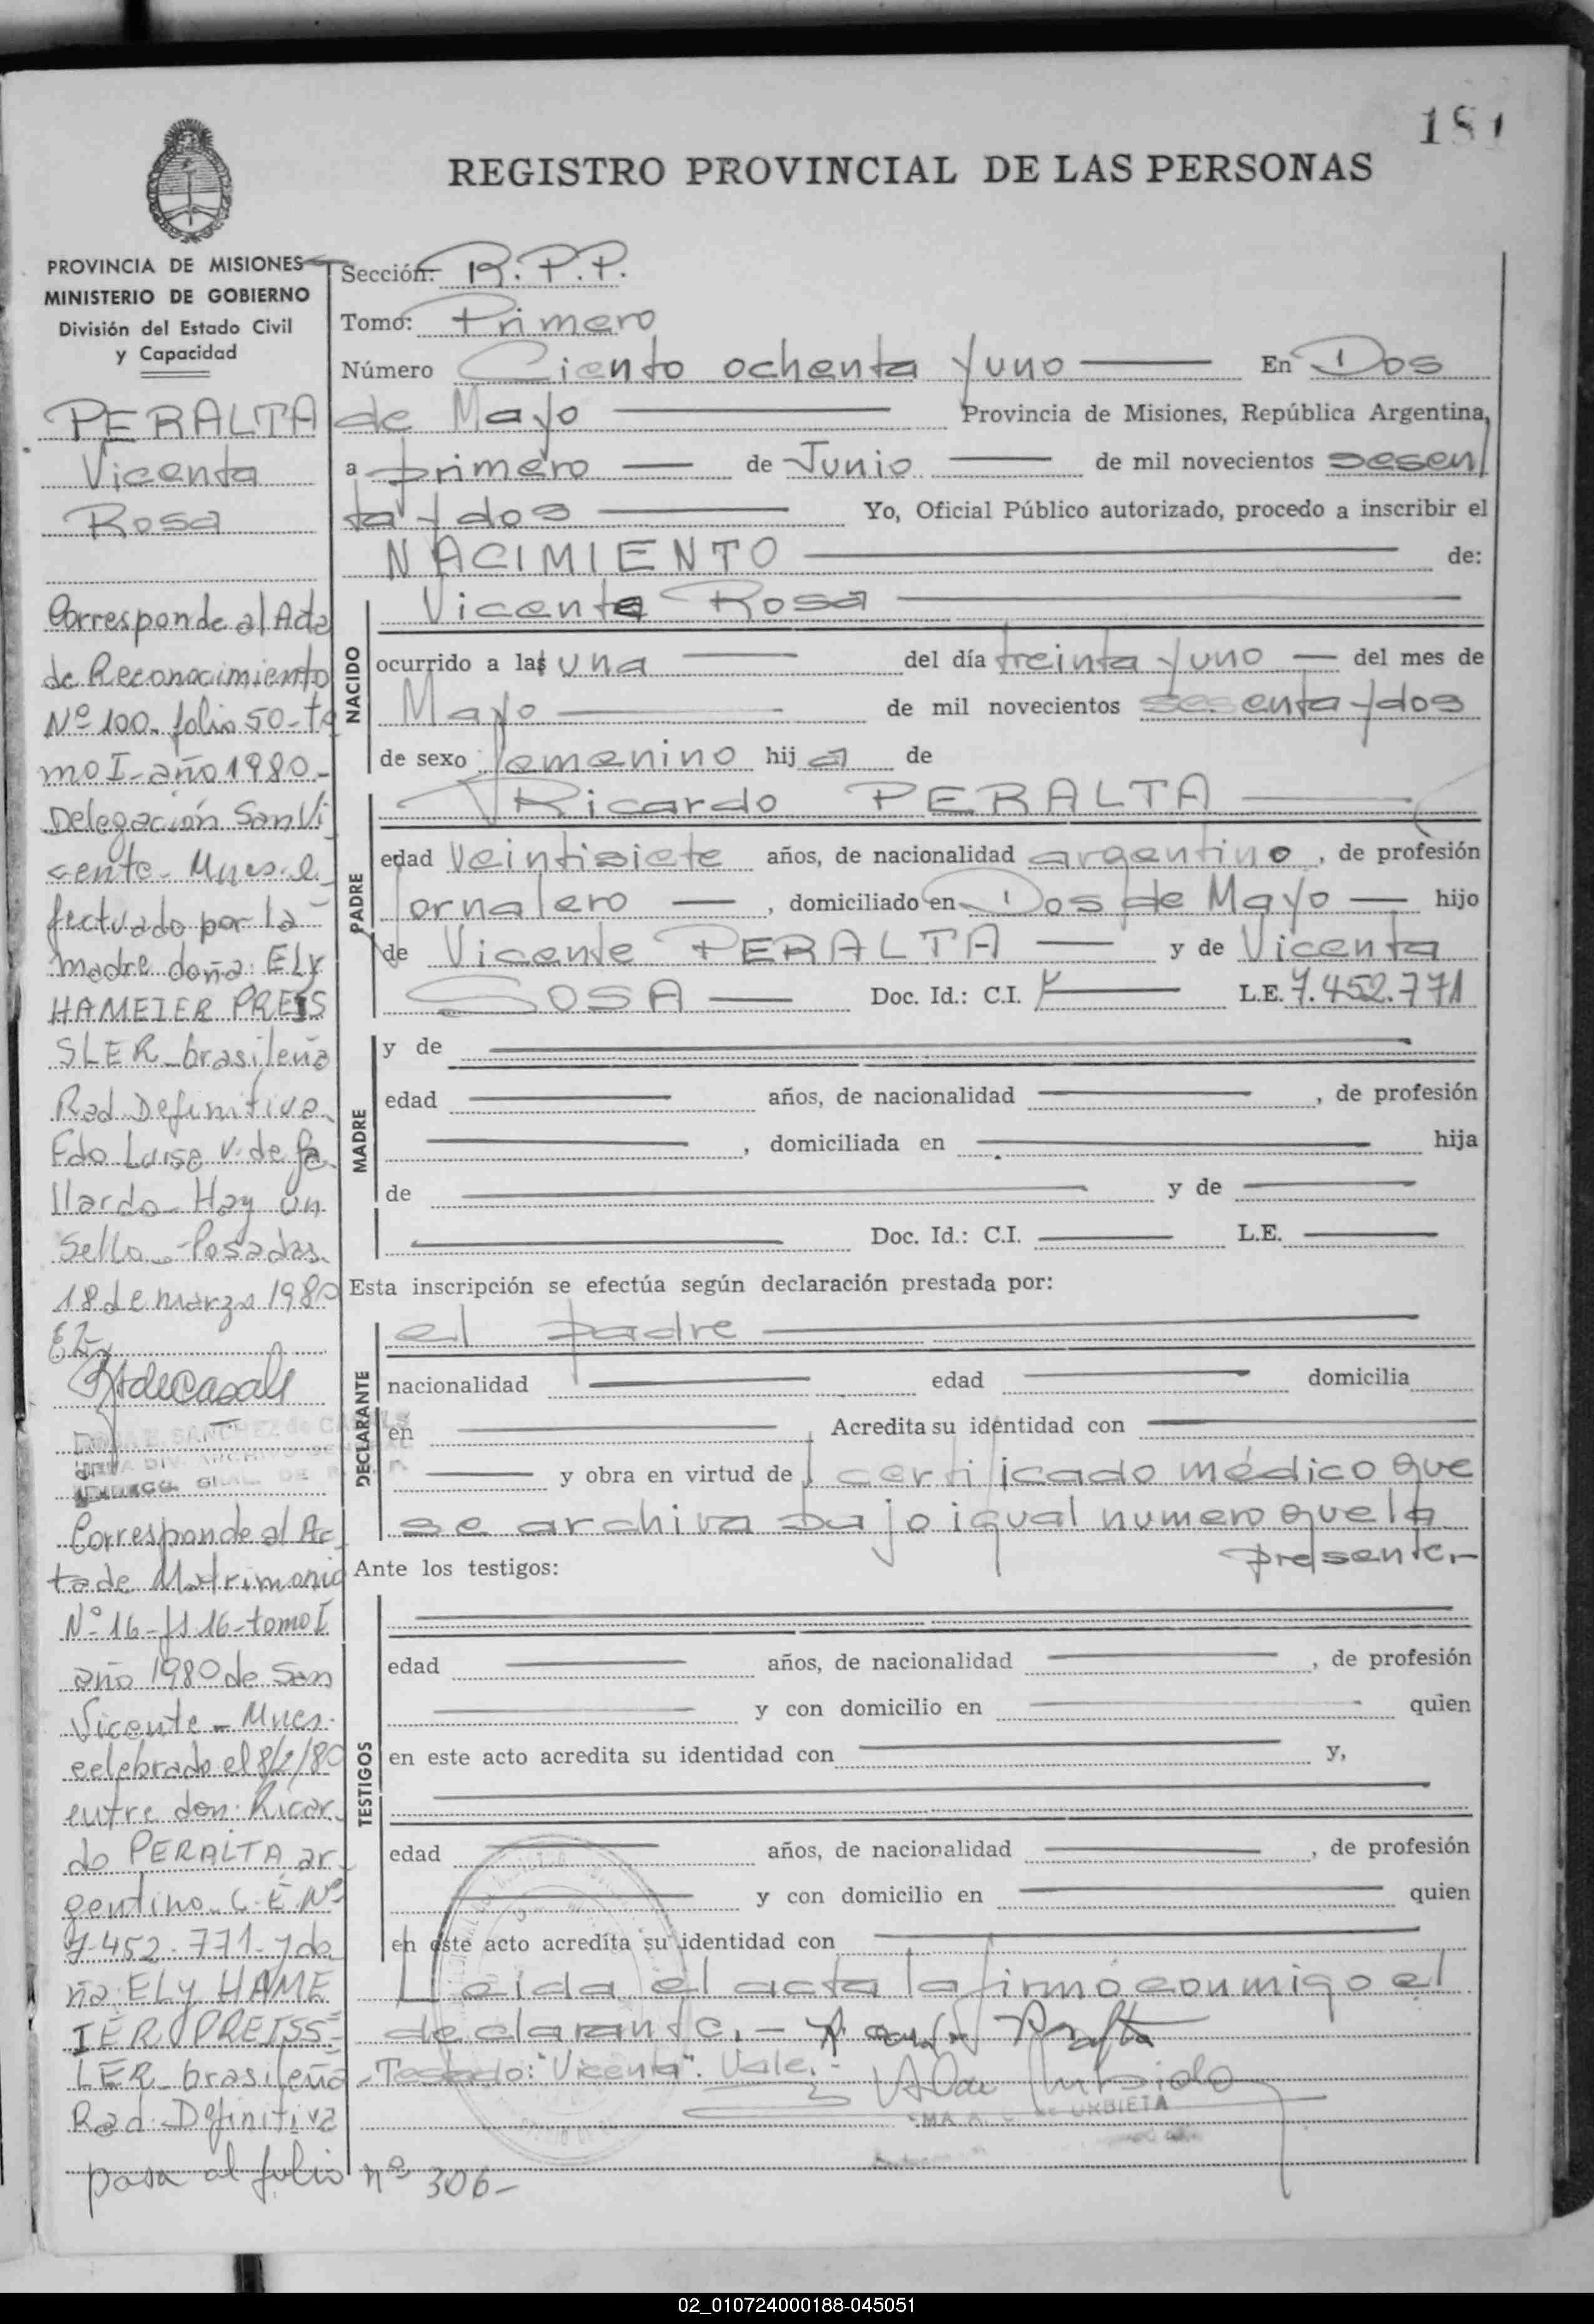 181
REGISTRO PROVINCIAL DE LAS PERSONAS
PROVINCIA DE MISIONES
MINISTERIO DE GOBIERNO
División del Estado Civil
y Capacidad
PERALTA
Vicenta
Rosa
Corresponde al Acta
de Reconocimiento
Nº 100. folio 50-to
mo I-año 1980-
Delegación San Vi
cente- Mnes. e
fectuado por la
madre doña: ELY
HAMEIER PREIS
SLER-brasileña
Rad. Definitiva
Fdo Luisa V. de Ga
llardo- Hay un
Sello-Posadas
18 de marzo 1980
SANCHEZ de CASALS
DIV. ARCHIVO GENERAL
Corresponde al Ac
ta de Matrimonio
Nº 16-fs 16-tomo I
año 1980 de San
Vicente - Mnes.
celebrado el 8/2/80
entre don: Ricar
do PERALTA ar
gentino. C.E. Nº
7.452.771- y do
ña: ELY HAME
IER PREISS-
LER-brasileña
Rad. Definitiva
pasa al folio nº 306-
Sección: R.P.P.
Tomo: Primero
Número Ciento ochenta y uno En Dos
de Mayo Provincia de Misiones, República Argentina,
a primero de Junio de mil novecientos sesen
ta y dos Yo, Oficial Público autorizado, procedo a inscribir el
NACIMIENTO de:
NACIDO
Vicenta Rosa
ocurrido a las una del día treinta y uno del mes de
Mayo de mil novecientos sesenta y dos
de sexo femenino hij a de
PADRE
Ricardo PERALTA
edad Veintisiete años, de nacionalidad argentino, de profesión
Jornalero, domiciliado en Dos de Mayo hijo
de Vicente PERALTA y de Vicenta
SOSA Doc. Id.: C.I. L.E. 7.452.771
MADRE
y de
edad años, de nacionalidad , de profesión
, domiciliada en hija
de y de
Doc. Id.: C.I. L.E.
Esta inscripción se efectúa según declaración prestada por:
DECLARANTE
el padre
nacionalidad edad domicilia
en Acredita su identidad con
y obra en virtud de certificado médico que
se archiva bajo igual numero que la
presente.-
Ante los testigos:
TESTIGOS
edad años, de nacionalidad , de profesión
y con domicilio en quien
en este acto acredita su identidad con y,
edad años, de nacionalidad , de profesión
y con domicilio en quien
en este acto acredita su identidad con
Leida el acta la firmó conmigo el
declarante.-
Testado: "Vicenta". Vale.-
URBIETA
02_010724000188-045051